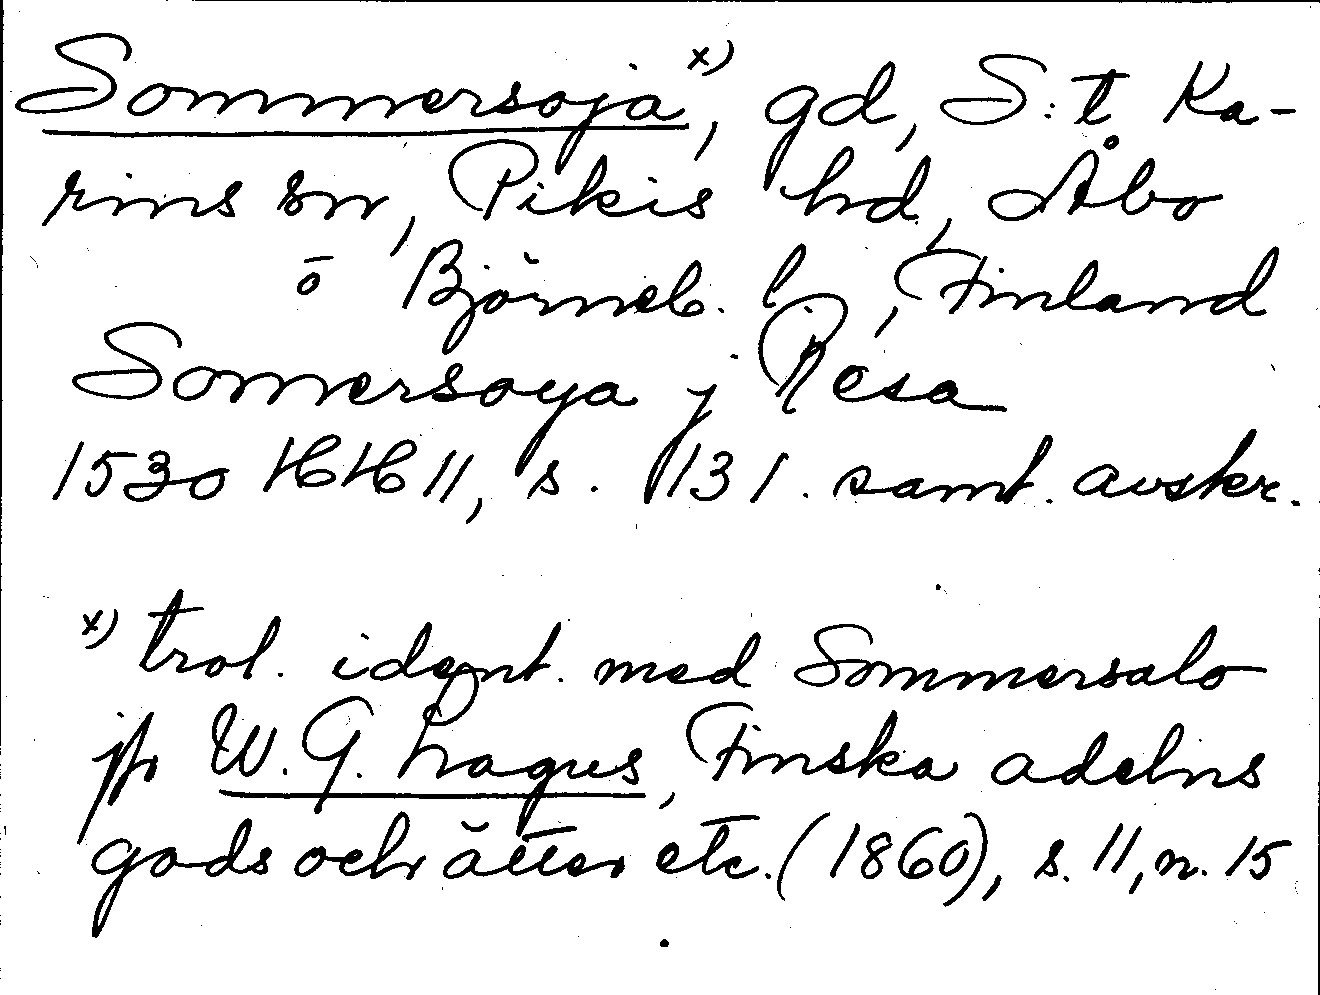 Sommersoja x), gd, S:t Ka-
rins sn, Pikis hd, Åbo
o Björneb. l., Finland
Somersoya j Resa
1530 HH 11, s. 131. samt. avskr.
x) trol. ident. med Sommersalo
jfr W. G. Lagus, Finska adelns
gods och ätter etc. (1860), s. 11, n. 15